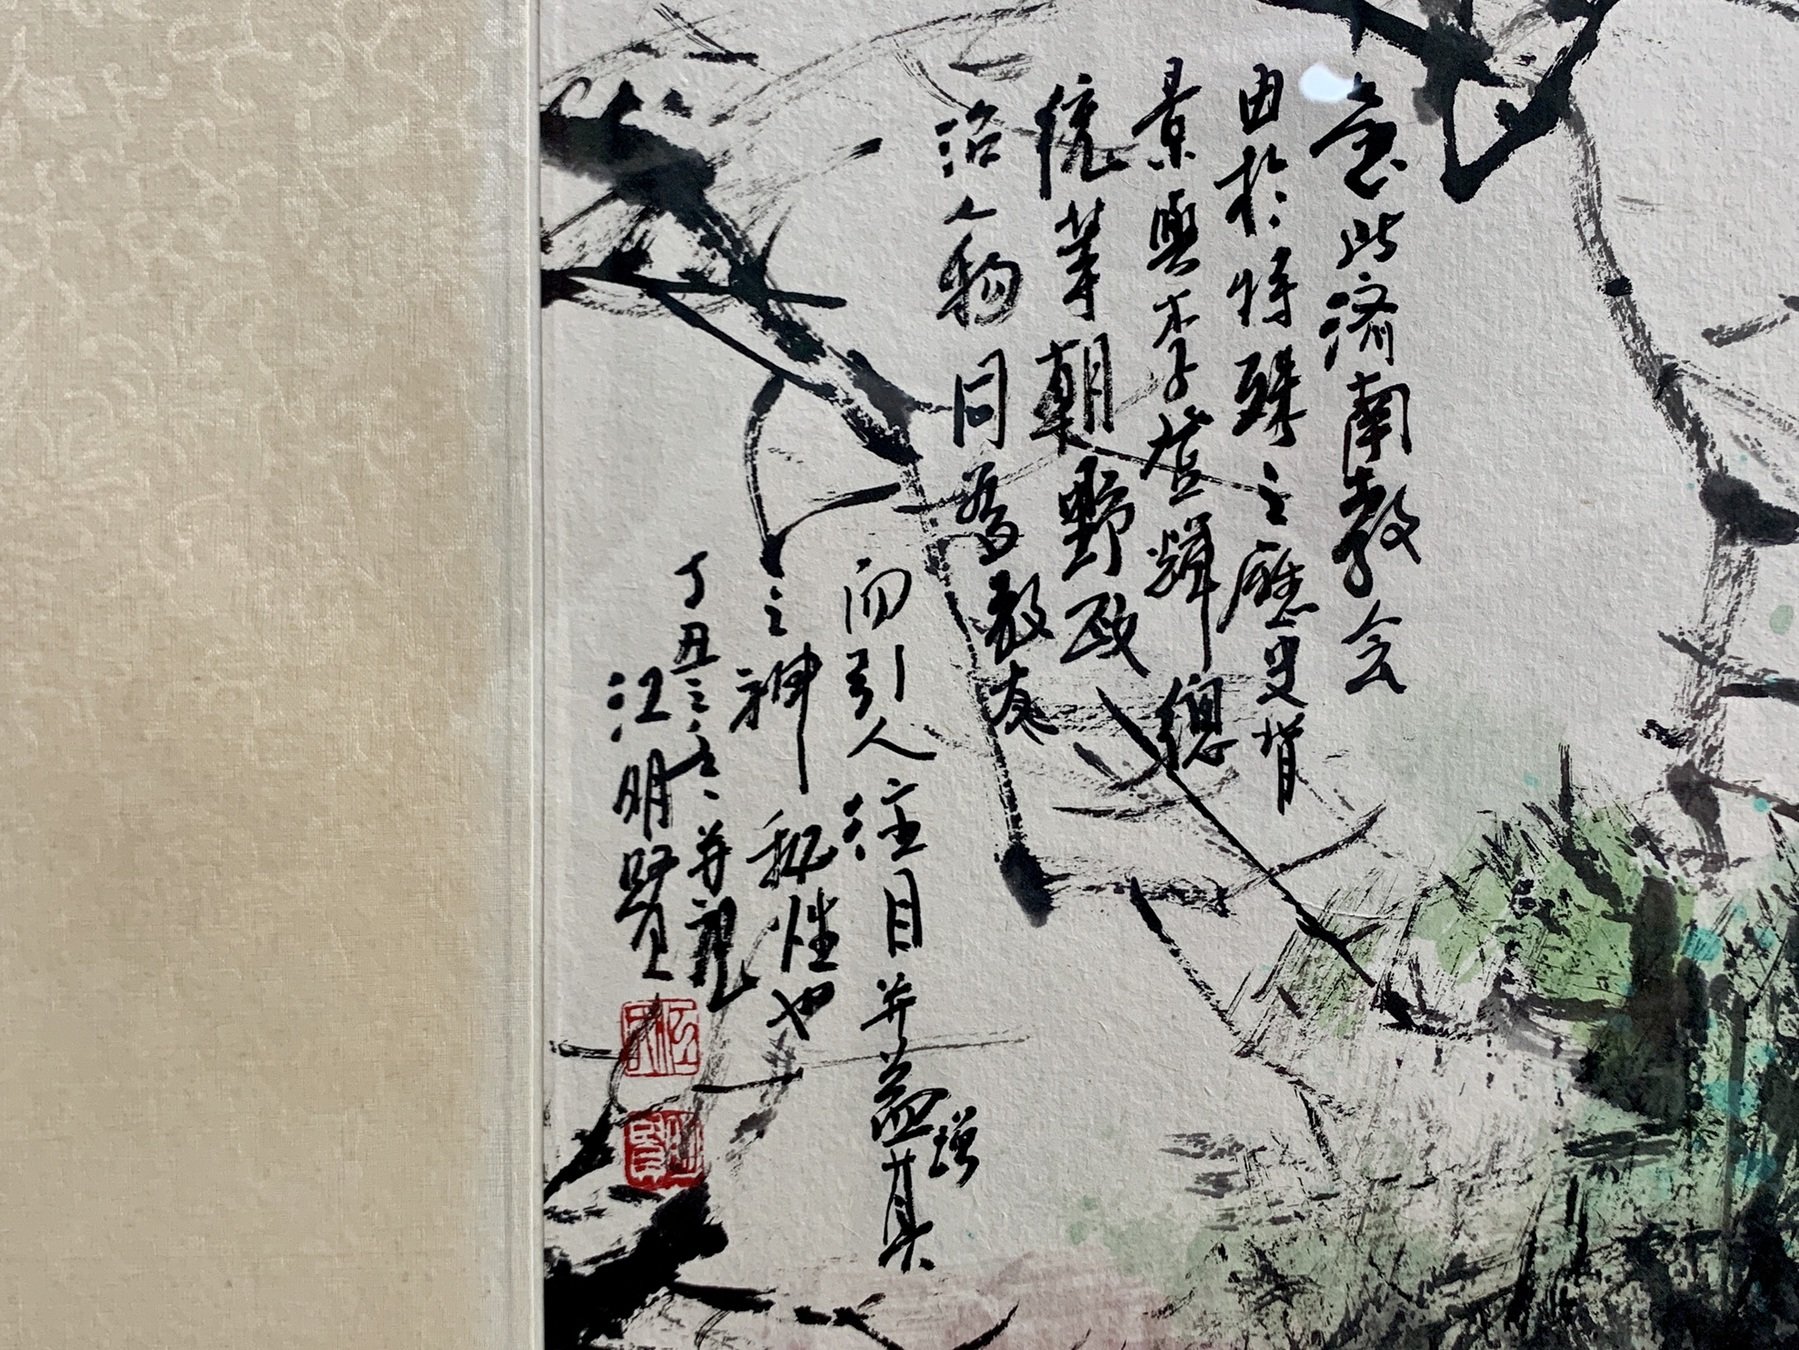 画此濟南教会
由於特殊之歷史背
景與李登輝總
統等朝野政
治人物同為教友
而引人注目并益增其
之神秘性也
丁丑之冬并記
江明賢